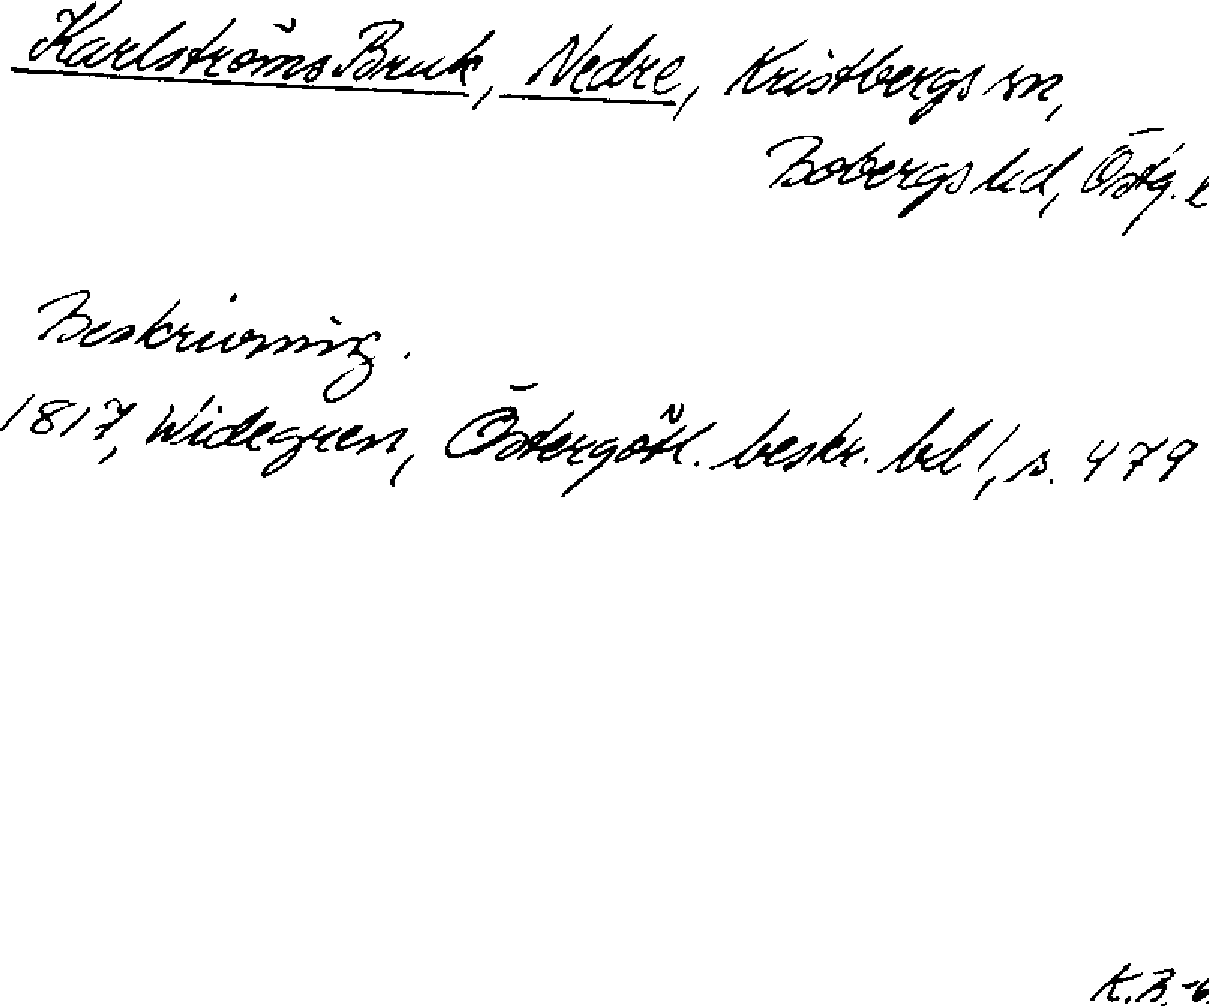 Karlströms Bruk, Nedre, Kristbergs sn,
Bobergs hd, Östg. l
Beskrivning.
1817, Widegren, Östergötl. beskr. bd 1, s. 479
K.B. -6